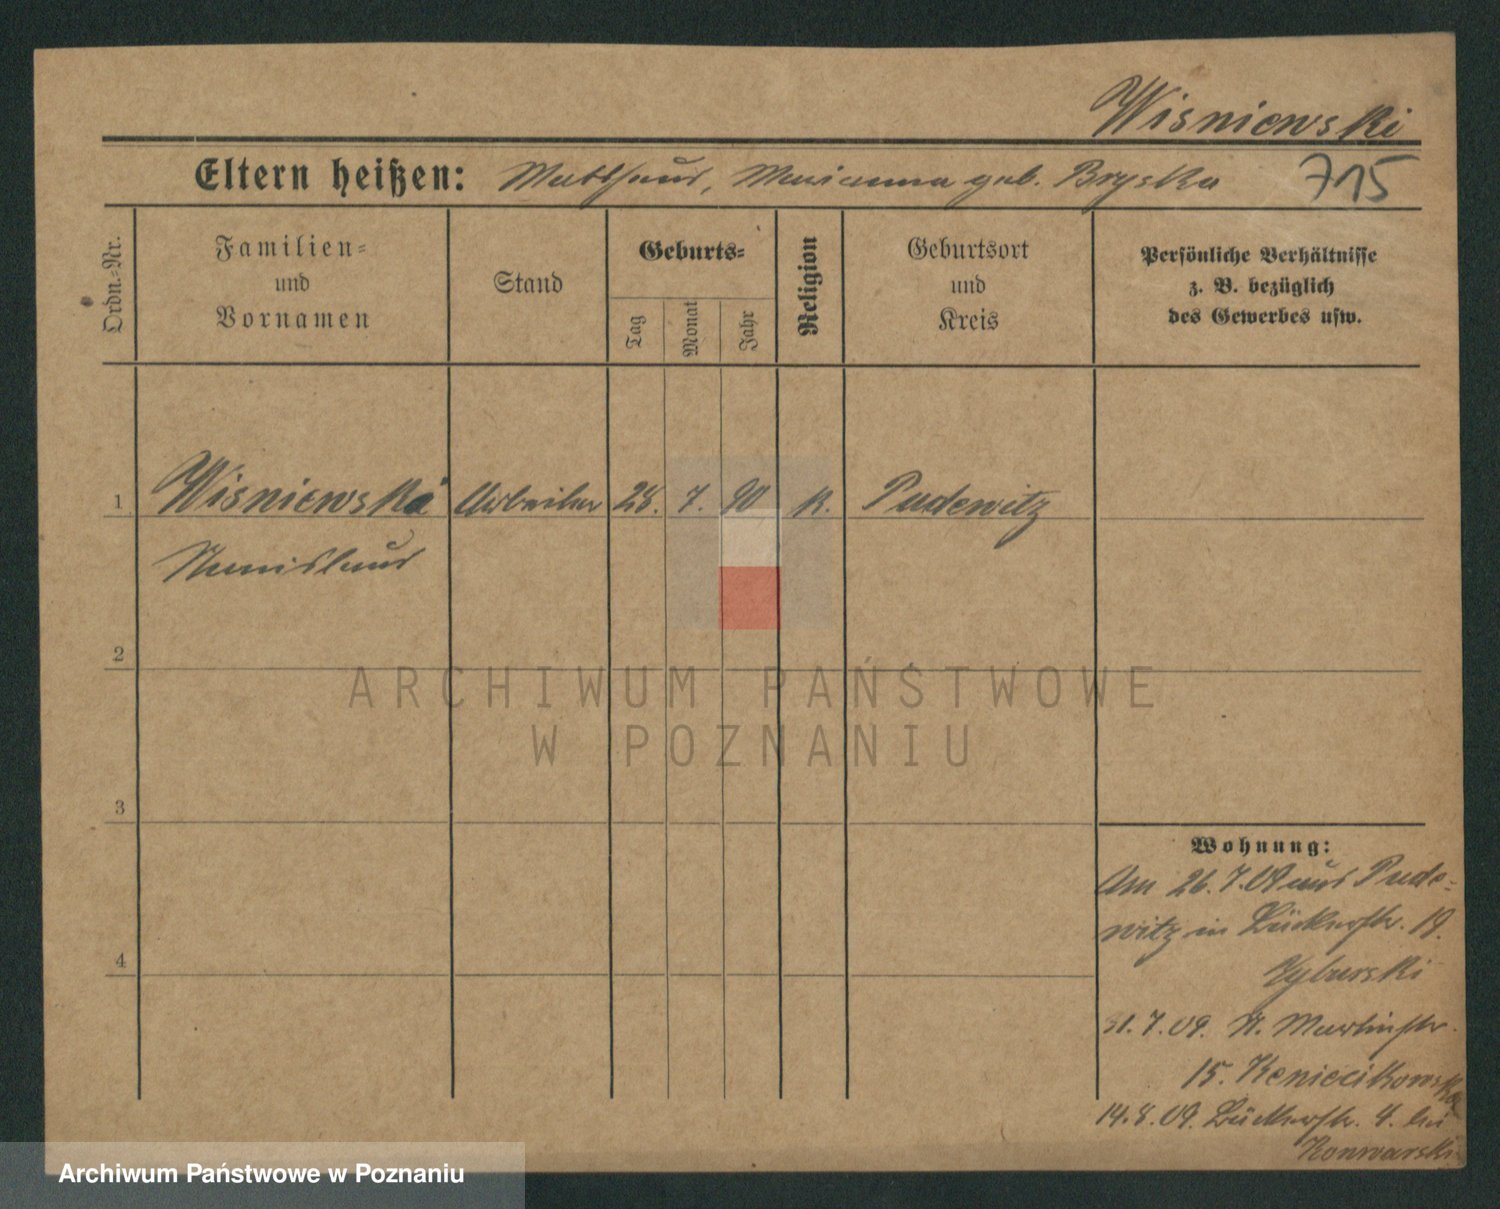 Wisniewski
Eltern heißen: Matthaeus, Marianna geb. Bryska 715
Ordn.-Nr.
Familien-
und
Vornamen
Stand
Geburts-
Tag
Monat
Jahr
Religion
Geburtsort
und
Kreis
Persönliche Verhältnisse
z. B. bezüglich
des Gewerbes usw.
1 Wisniewski Arbeiter 28. 7. 90 k. Pudewitz
Stanislaus
2
3
4
Wohnung:
Am 26.7.09 aus Pude-
witz in Bäckerstr. 19.
Zyburski
31.7.09. St. Martinstr.
15.
14.8.09. Bäckerstr. 4. bei
Konwarski
ARCHIWUM PAŃSTWOWE
W POZNANIU
Archiwum Państwowe w Poznaniu